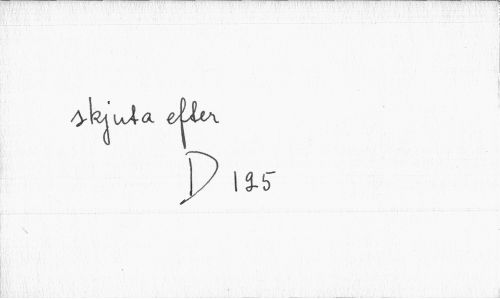 skjuta efter
D 195